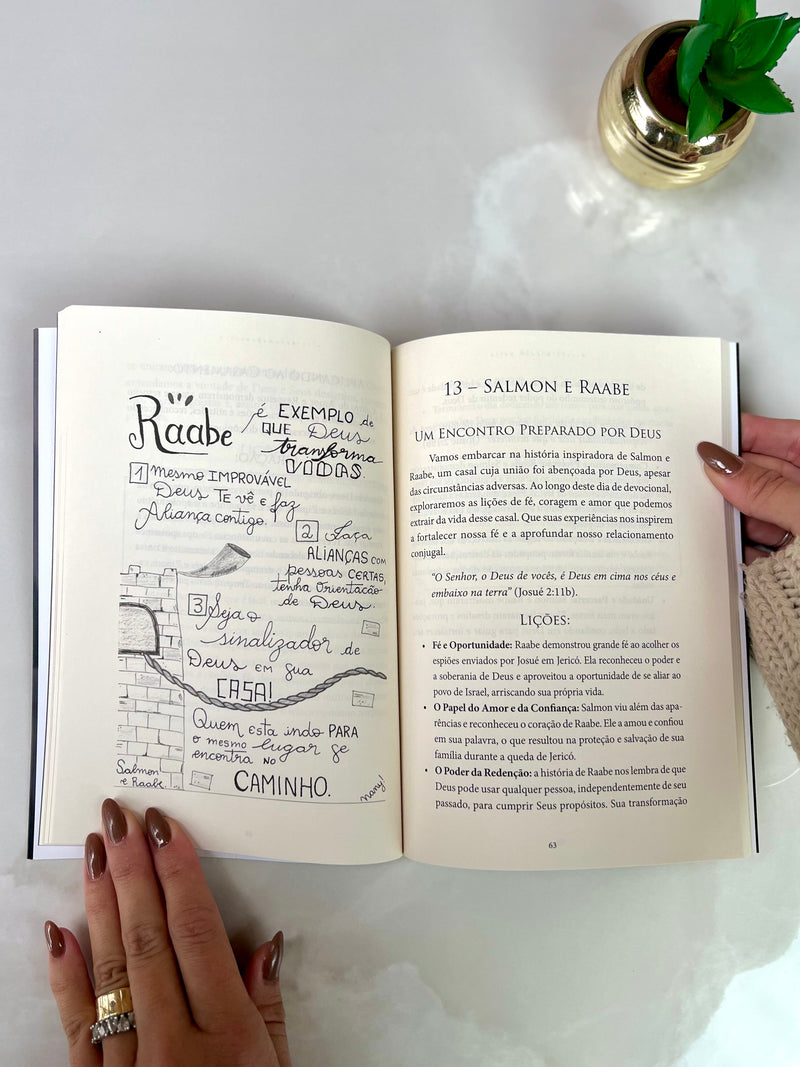 Raabe
é EXEMPLO de
QUE Deus
transforma
VIDAS.
1 mesmo IMPROVÁVEL
Deus TE vê e faz
Aliança contigo.
2 Faça
ALIANÇAS com
pessoas CERTAS,
tenha Orientação
de Deus.
3 Seja o
sinalizador de
Deus em sua
CASA!
Quem esta indo PARA
o mesmo lugar se
encontra NO
CAMINHO.
Salmon
e Raabe
nany!
13 – Salmon e Raabe
Um Encontro Preparado por Deus
Vamos embarcar na história inspiradora de Salmon e
Raabe, um casal cuja união foi abençoada por Deus, apesar
das circunstâncias adversas. Ao longo deste dia de devocional,
exploraremos as lições de fé, coragem e amor que podemos
extrair da vida desse casal. Que suas experiências nos inspirem
a fortalecer nossa fé e a aprofundar nosso relacionamento
conjugal.
“O Senhor, o Deus de vocês, é Deus em cima nos céus e
embaixo na terra” (Josué 2:11b).
Lições:
• Fé e Oportunidade: Raabe demonstrou grande fé ao acolher os
espiões enviados por Josué em Jericó. Ela reconheceu o poder e
a soberania de Deus e aproveitou a oportunidade de se aliar ao
povo de Israel, arriscando sua própria vida.
• O Papel do Amor e da Confiança: Salmon viu além das apa-
rências e reconheceu o coração de Raabe. Ele a amou e confiou
em sua palavra, o que resultou na proteção e salvação de sua
família durante a queda de Jericó.
• O Poder da Redenção: a história de Raabe nos lembra de que
Deus pode usar qualquer pessoa, independentemente de seu
passado, para cumprir Seus propósitos. Sua transformação
63